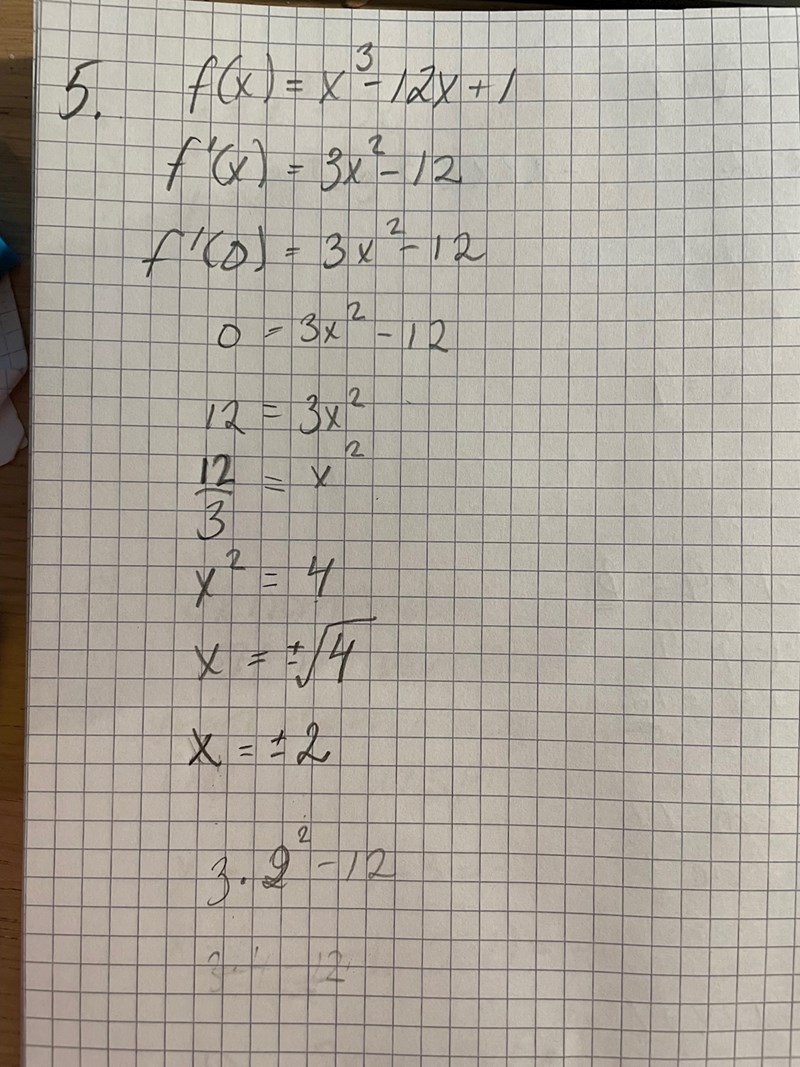 5. f(x) = x³ - 12x + 1
f'(x) = 3x² - 12
f'(0) = 3x² - 12
0 = 3x² - 12
12 = 3x²
12/3 = x²
x² = 4
x = ±√4
x = ±2
3 · 2² - 12
3 · 4 - 12